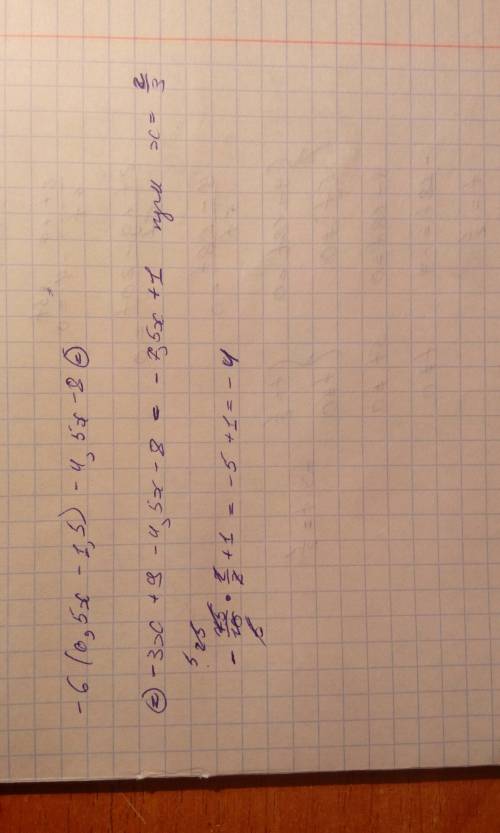 -6 (0,5x - 1,5) - 4,5x - 8 =
= -3x + 9 - 4,5x - 8 = -7,5x + 1 при x = 2/3
- 75/10 · 2/3 + 1 = -5 + 1 = -4